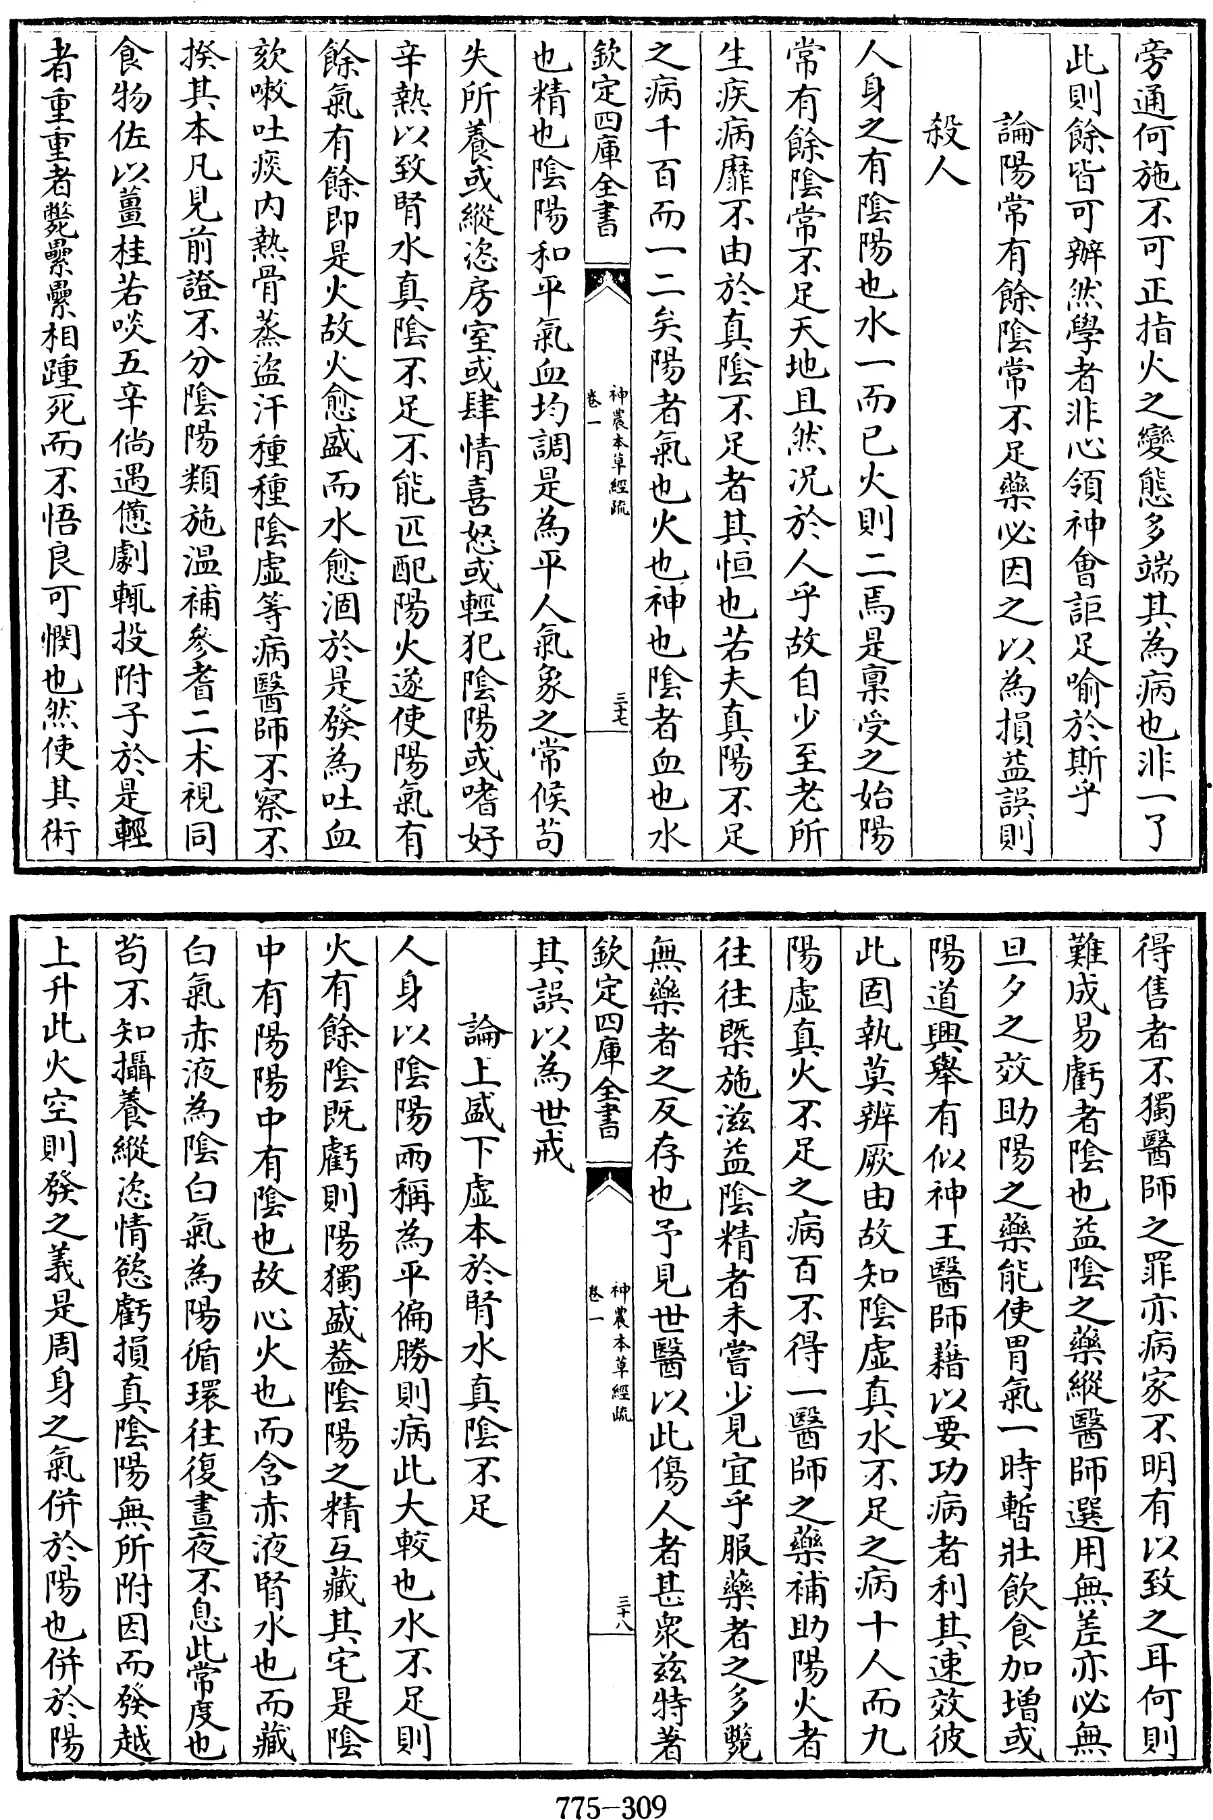 旁通何施不可正指火之變態多端其為病也非一了
此則餘皆可辦然學者非心領神會詎足喻於斯乎
論陽常有餘陰常不足藥必因之以為損益誤則
殺人
人身之有陰陽也水一而已火則二焉是稟受之始陽
常有餘陰常不足天地且然况於人乎故自少至老所
生疾病靡不由於真陰不足者其恒也若夫真陽不足
之病千百而一二矣陽者氣也火也神也陰者血也水
欽定四庫全書
神農本草經疏
卷一
三十七
也精也陰陽和平氣血均調是為平人氣象之常候苟
失所養或縱恣房室或肆情喜怒或輕犯陰陽或嗜好
辛熱以致腎水真陰不足不能匹配陽火遂使陽氣有
餘氣有餘即是火故火愈盛而水愈涸於是發為吐血
欬嗽吐痰内熱骨蒸盜汗種種陰虛等病醫師不察不
揆其本凡見前證不分陰陽類施温補參耆二术視同
食物佐以薑桂若啖五辛倘遇憊劇輒投附子於是輕
者重重者斃纍纍相踵死而不悟良可憫也然使其術
得售者不獨醫師之罪亦病家不明有以致之耳何則
難成易虧者陰也益陰之藥縱醫師選用無差亦必無
旦夕之效助陽之藥能使胃氣一時暫壯飲食加增或
陽道興舉有似神王醫師藉以要功病者利其速效彼
此固執莫辨厥由故知陰虛真水不足之病十人而九
陽虛真火不足之病百不得一醫師之藥補助陽火者
往往槩施滋益陰精者未嘗少見宜乎服藥者之多斃
無藥者之反存也予見世醫以此傷人者甚衆兹特著
欽定四庫全書
神農本草經疏
卷一
三十八
其誤以為世戒
論上盛下虛本於腎水真陰不足
人身以陰陽兩稱為平偏勝則病此大較也水不足則
火有餘陰既虧則陽獨盛葢陰陽之精互藏其宅是陰
中有陽陽中有陰也故心火也而含赤液腎水也而藏
白氣赤液為陰白氣為陽循環往復晝夜不息此常度也
苟不知攝養縱恣情慾虧損真陰陽無所附因而發越
上升此火空則發之義是周身之氣併於陽也併於陽
775-309